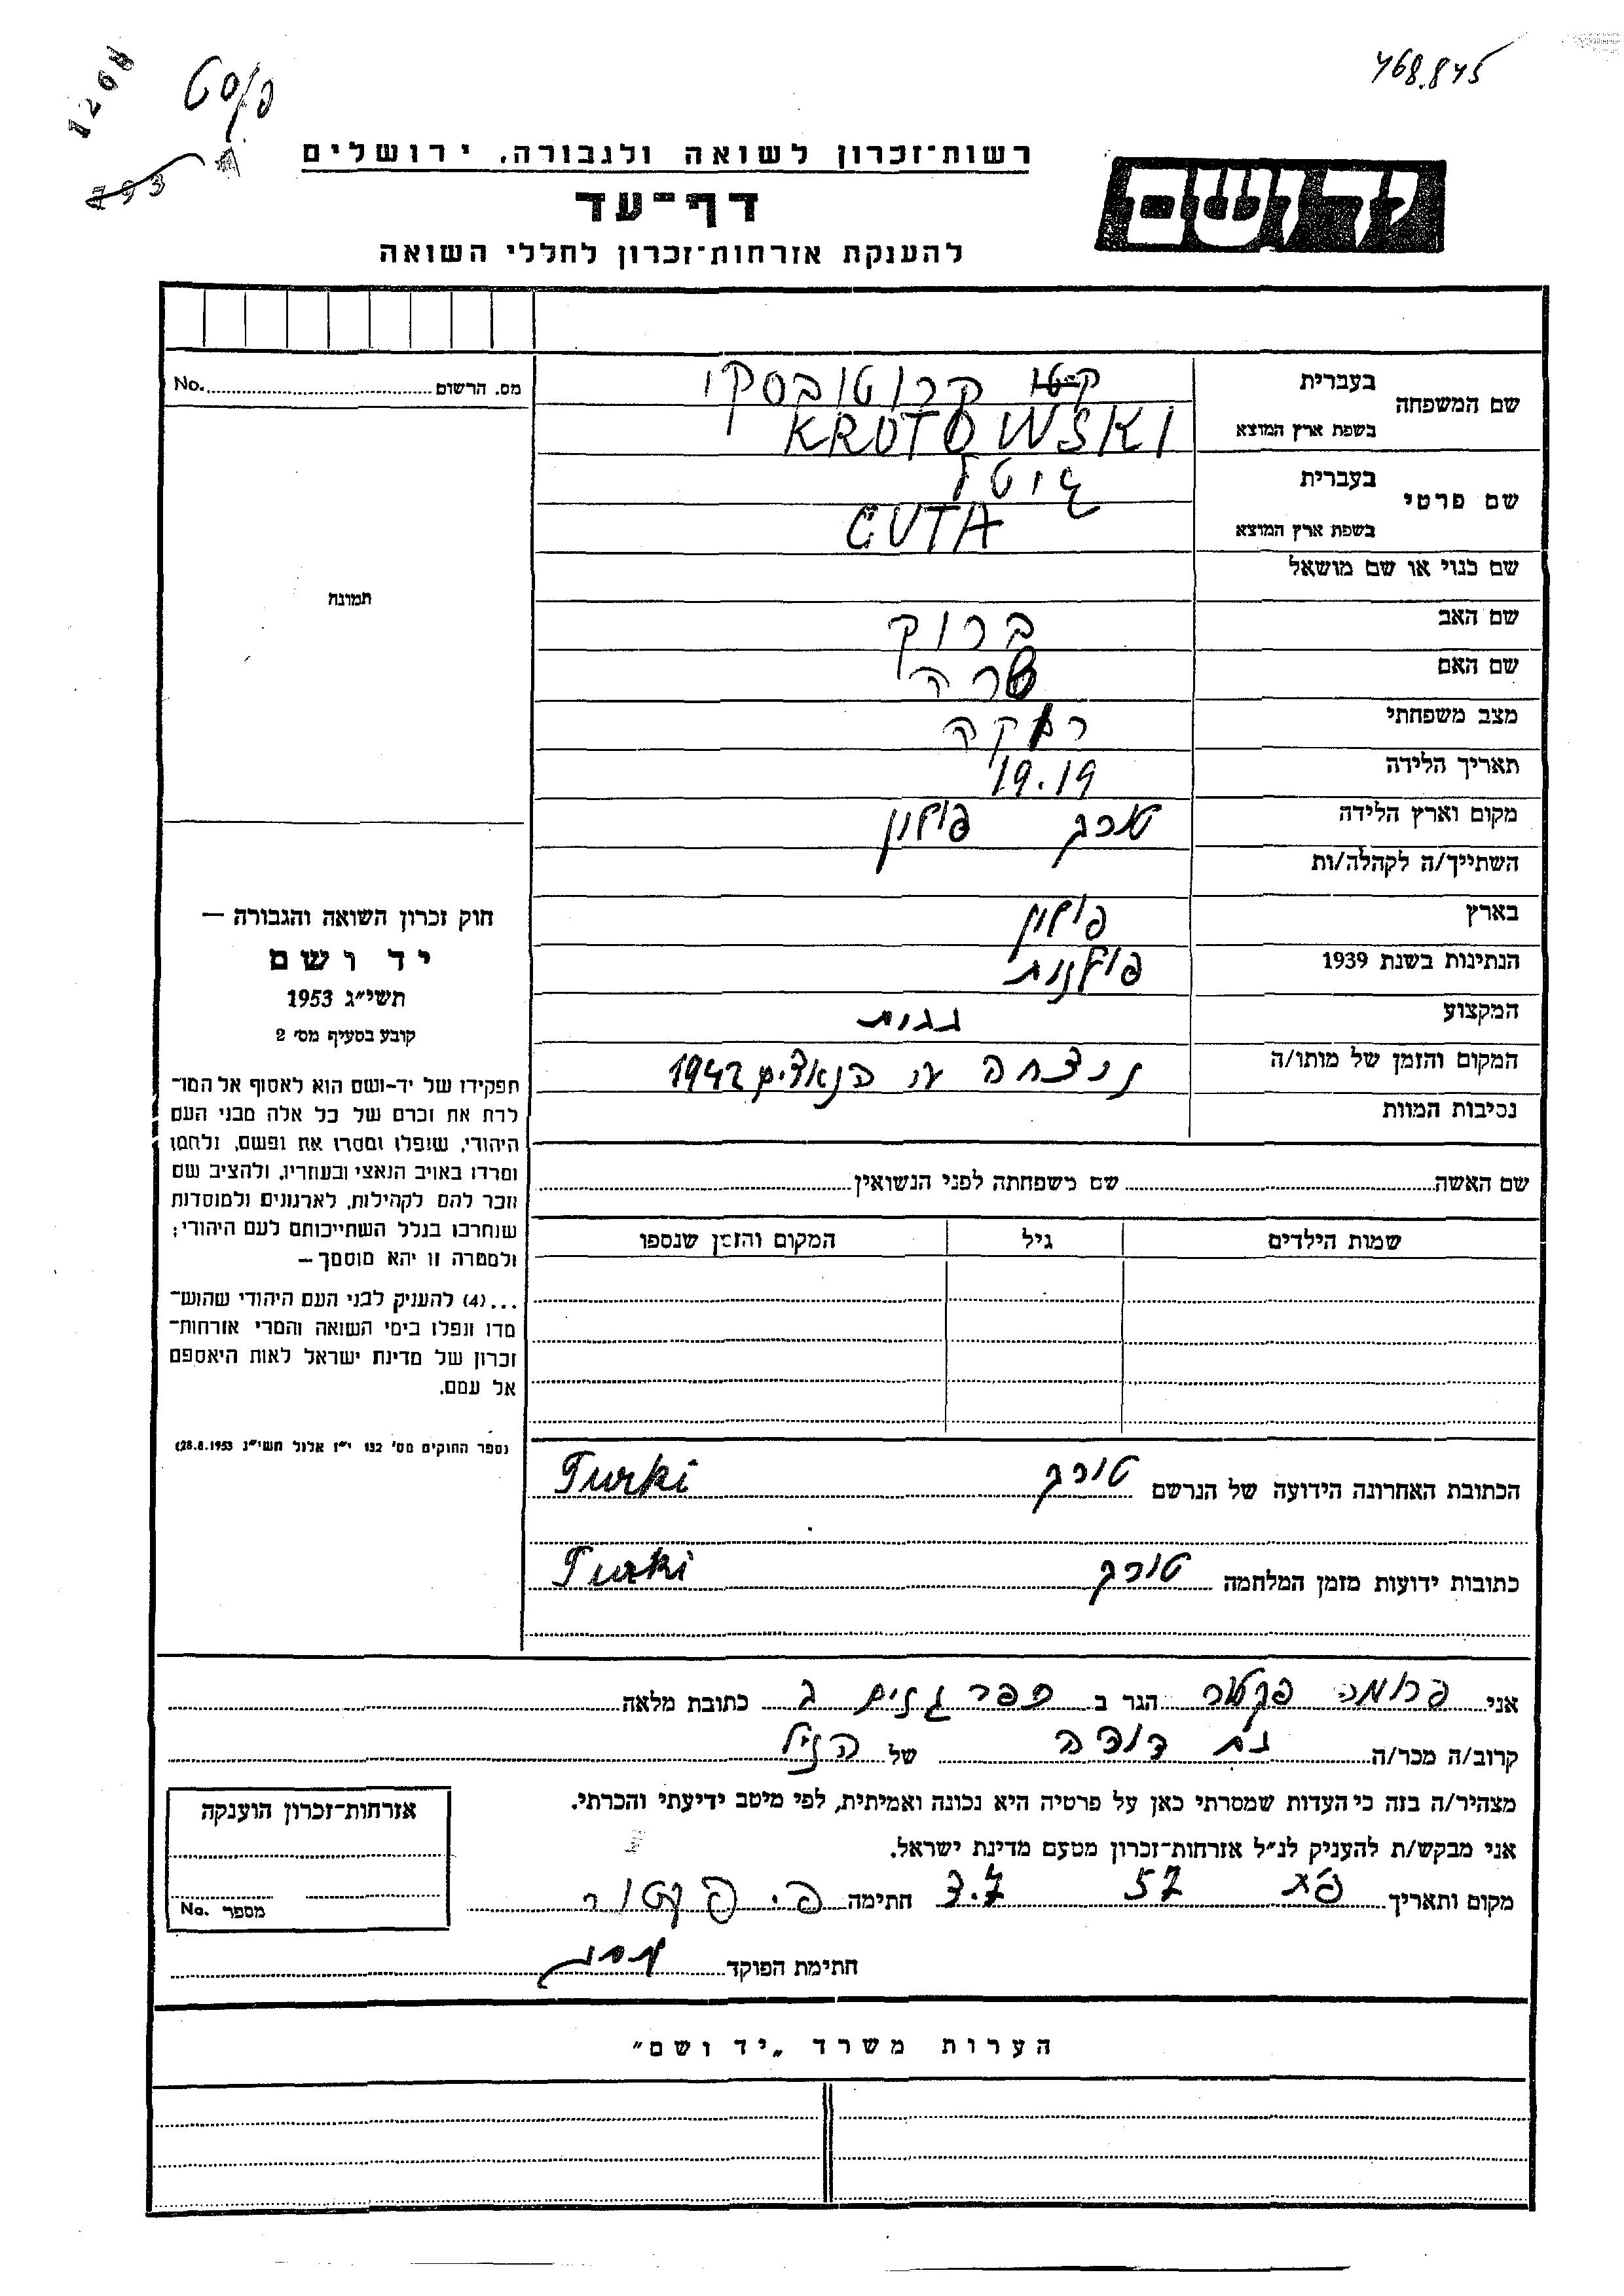 468.845
1208
793
רשות־זכרון לשואה ולגבורה, ירושלים
ידושם
דף־עד
להענקת אזרחות־זכרון לחללי השואה
No. מס. הרשום
שם המשפחה
בעברית קרוטובסקי
בשפת ארץ המוצא KROTOWSKI
שם פרטי
בעברית גיטל
בשפת ארץ המוצא GUTA
שם כנוי או שם מושאל
תמונה
שם האב ברוק
שם האם שרה
מצב משפחתי רוקה
תאריך הלידה 19.19
מקום וארץ הלידה טורק פולין
השתייך/ה לקהלה/ות
בארץ פולין
הנתינות בשנת 1939 פולנית
המקצוע
המקום והזמן של מותו/ה נרצחה ע״י הנאצים 1942
נסיבות המוות
חוק זכרון השואה והגבורה —
יד ושם
תשי״ג 1953
קובע בסעיף מס׳ 2
תפקידו של יד-ושם הוא לאסוף אל המו־
לדת את זכרם של כל אלה מבני העם
היהודי, שנפלו ומסרו את נפשם, נלחמו
ומרדו באויב הנאצי ובעוזריו, ולהציב שם
וזכר להם לקהילות, לארגונים ולמוסדות
שנחרבו בגלל השתייכותם לעם היהודי;
ולמטרה זו יהא מוסמך —
...(4) להעניק לבני העם היהודי שהוש־
מדו ונפלו בימי השואה והמרי אזרחות־
זכרון של מדינת ישראל לאות היאספם
אל עמם.
(ספר החוקים מס׳ 132 י״ז אלול תשי״ג 28.8.1953)
שם האשה שם משפחתה לפני הנשואין
שמות הילדים גיל המקום והזמן שנספו
הכתובת האחרונה הידועה של הנרשם טורק Turki
כתובות ידועות מזמן המלחמה טורק Turki
אני פרומה פקטור הגר ב כפר גנים ג כתובת מלאה
קרוב/ה מכר/ה בת דודה של הנ״ל
מצהיר/ה בזה כי העדות שמסרתי כאן על פרטיה היא נכונה ואמיתית, לפי מיטב ידיעתי והכרתי.
אני מבקש/ת להעניק לנ״ל אזרחות־זכרון מטעם מדינת ישראל.
מקום ותאריך פ״ת 57 חתימה פ. פקטור
חתימת הפוקד
אזרחות־זכרון הוענקה
No. מספר
הערות משרד „יד ושם״